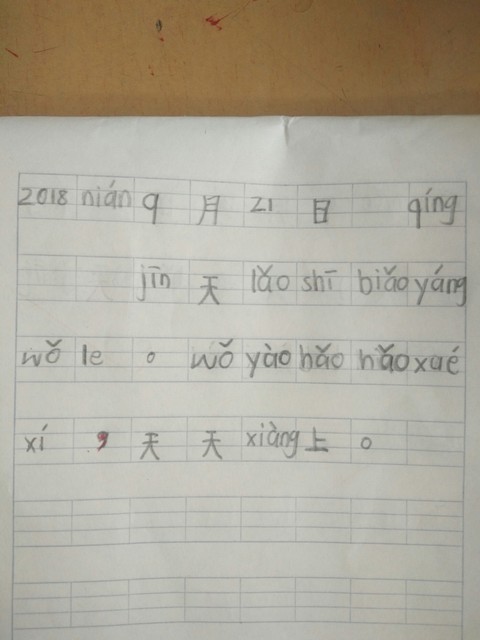 2018 nián 9 月 21 日 qíng
jīn 天 lǎo shī biǎo yáng
wǒ le 。 wǒ yào hǎo hǎo xué
xí , 天 天 xiàng 上 。